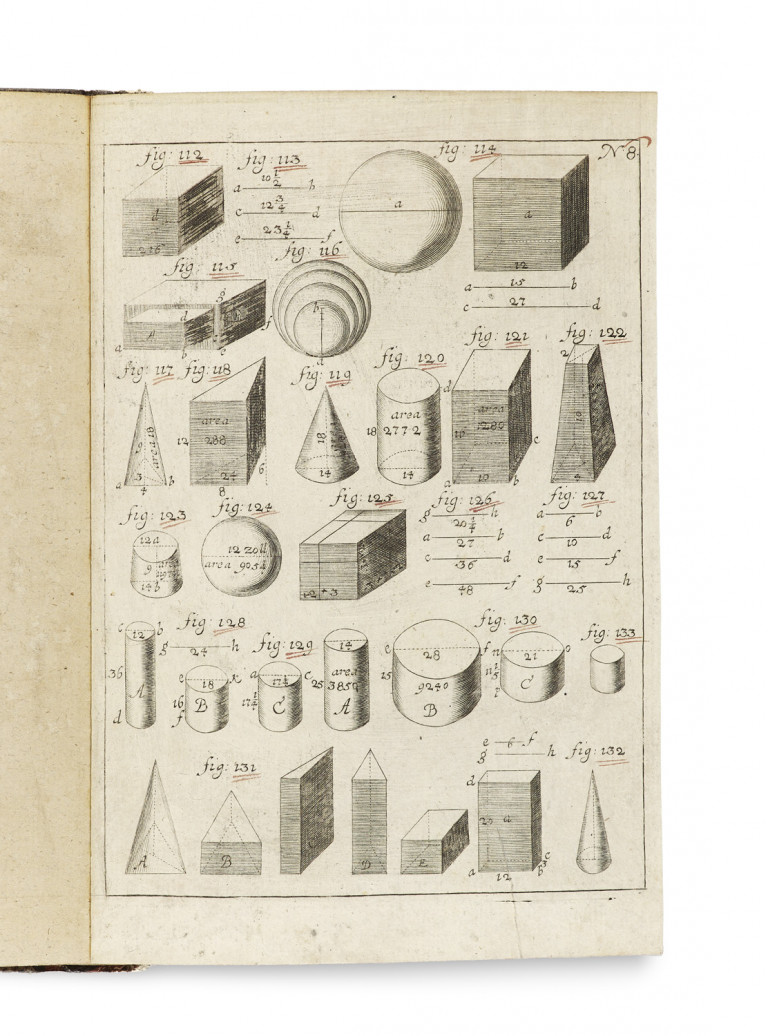 fig: 112
fig: 113
fig: 114
N 8.
d
216
a 10 1/2 b
c 12 3/4 d
e 23 1/4 f
a
a
12
a 15 b
c 27 d
fig: 115
fig: 116
g
d
f
a
b
c
b
a
fig: 117
fig: 118
fig: 119
fig: 120
fig: 121
fig: 122
area 18
3
a 4 b
12
area
288
24
8
6
18
14
18
area
2772
14
d
area
1280
10
a
b
c
2
4
fig: 123
fig: 124
fig: 125
fig: 126
fig: 127
12 a
9
area
14 b
12 zoll
area 905 1/7
12 + 3
g 20 1/4 h
a 27 b
c 36 d
e 48 f
a 6 b
c 10 d
e 15 f
g 25 h
fig: 128
fig: 129
fig: 130
fig: 133
c 12 b
36
A
d
g 24 h
e 18 k
16
B
f
a 17 1/2 c
17 1/2
C
14
25
area
3850
A
e 28 f
15
9240
B
n 21 o
C
p
fig: 131
fig: 132
A
B
C
D
E
e 6 f
g h
d
a
a 12 b
c